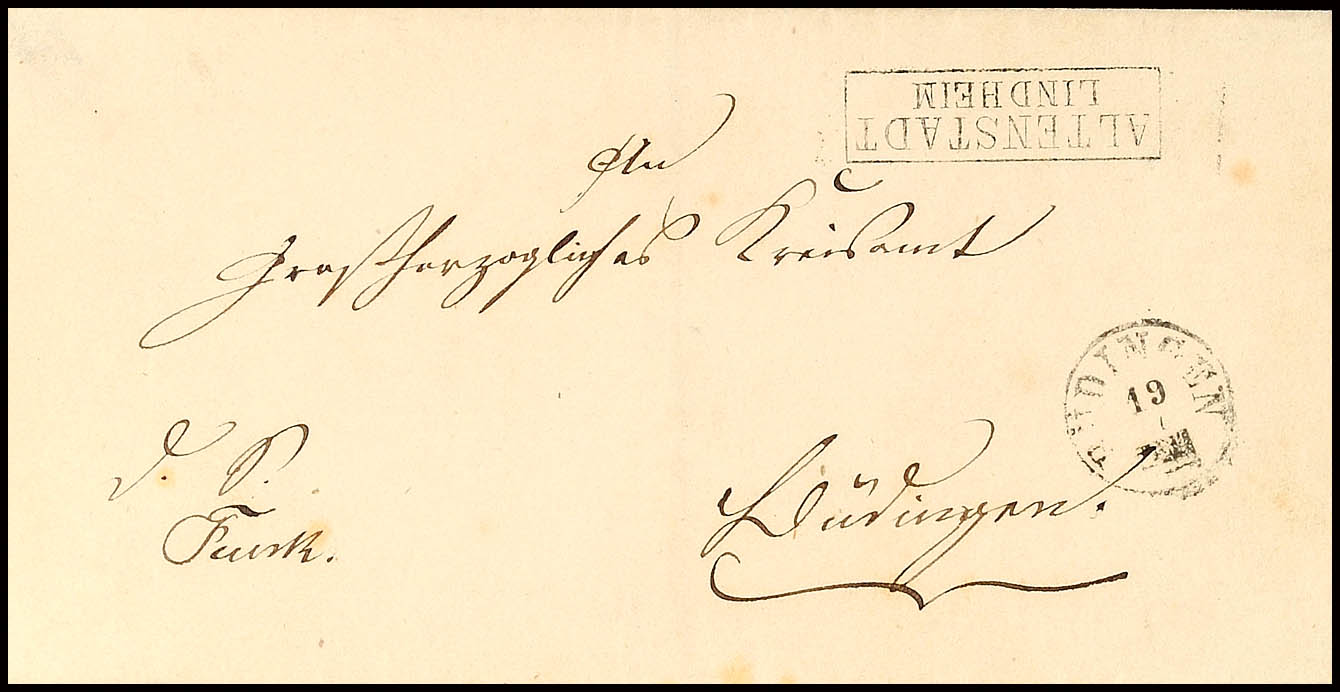 ALTENSTADT
LINDHEIM
An
Großherzogliches Kreisamt
BÜDINGEN
19
d. S.
Funk.
Büdingen.